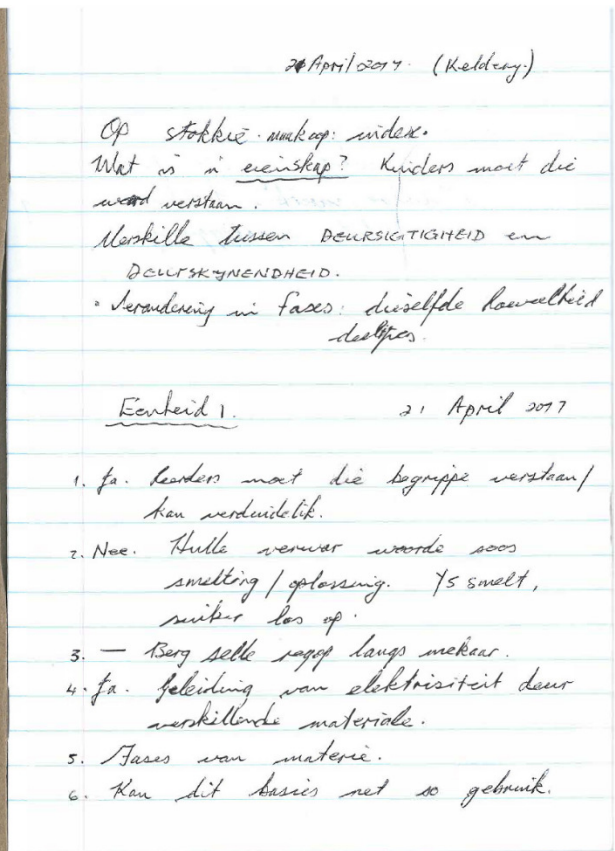 21 April 2017. (Keldery.)
Op stokkie. maak oop: indeks.
Wat is 'n eienskap? Kinders moet die
word verstaan.
Verskille tussen DEURSIGTIGHEID en
DEURSKYNENDHEID.
• Verandering in fases: dieselfde hoeveelheid
deeltjies.
Eenheid 1. 21 April 2017
1. Ja. Leerders moet die begrippe verstaan/
kan verduidelik.
2. Nee. Hulle verwar woorde soos
smelting/oplossing. Ys smelt,
suiker los op.
3. — Berg selle regop langs mekaar.
4. Ja. Geleiding van elektrisiteit deur
verskillende materiale.
5. Fases van materie.
6. Kan dit basies net so gebruik.